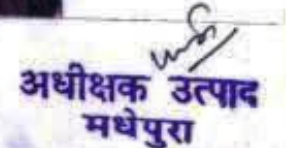 अधीक्षक उत्पाद
मधेपुरा